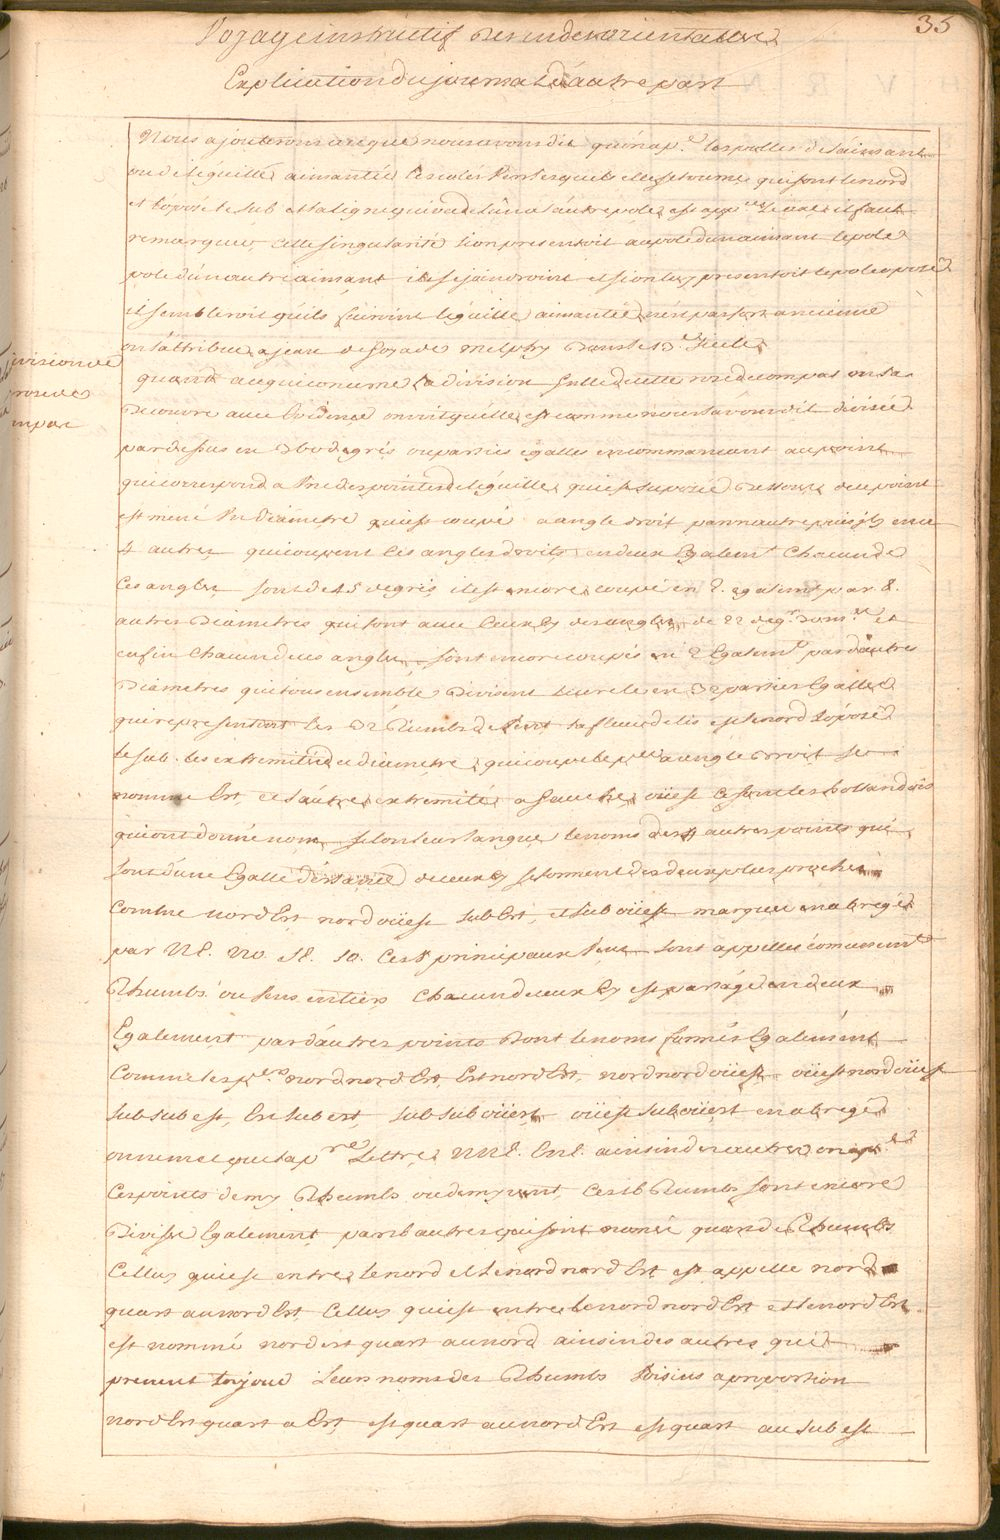 35
Voyage instructif des indes orientalles
Explication du journal d'autre part
Nous ajouterons a ce que nous avons dit qu'on ap.e les poilles de l'aimant
ou de l'éguille aimantée les cotés vers lesquels elle se tourne qui sont le nord
et l'oposé le sub et la ligne qui va de l'un a l'autre pole est app.ée l'axe il faut
remarquer cette singularité si on presentoit au pole d'un aimant le pole
pole d'un autre aimant ils se joindroint et si on luy presentoit le pole oposé
il sembleroit qu'ils fuiroint l'éguille aimantée n'est pas fort ancienne
on l'attribue a jean de Goya de melphy dans le 13.e siecle
division de
rose de
compas
quant a ce qui concerne la division faitte de cette rose de compas on la
decouvre avec evidence on voit qu'elle est comme nous l'avons dit divisée
par dessus en 360 degrés ou parties egalles en commancant au point
qui correspond a l'une des pointes de l'éguille qui est suposé dessous de ce point
est mené un diametre qui est coupé a angle droit par un autre puis en
4 autres qui coupent les angles droits en deux Egalem.t chacun de
ces angles sont de 45 degrés il est encore coupé en 2. egalem.t par 8.
autres diametres qui font avec ceux cy des angles de 22 deg. 30 m. et
enfin chacun de ces angles sont encore coupés en 2 Egalem.t par d'autres
diametres qui tous ensemble divisent le cercle en 32 parties Egalles
qui representent les 32 Rumbs de vent la fleur de lis est le nord l'oposé
le sub. les extremitées de diametre qui coupe le p.er a angle droit se
nomme Est, et l'autre extremité a gauche oüest ce sont les hollandois
qui ont donné nom selon leur langue le noms des 4 autres points qui
sont d'une Egalle de ceux cy se forment des deux plus proches
comme nord Est nord oüest sub Est, et sub oüest marqués en abregé
par NE. NO. SE. SO. Ces 8 principaux vens sont appellés comunem.t
Rhumbs ou vens entiers chacun de ceux cy est partagé en deux
Egalement par d'autres points dont le noms formés Egalement
comme les p.ers nord nord Est, Est nord Est, nord nord oüest oüest nord oüest
sub sub est, Est sub est, sub sub oüest oüest sub oüest en abregé
on ne met que la p.re Lettre NNE. ENE. ainsin des autres on ap.e
ces points demy Rhumbs ou demy vent, ces 16 Rumbs sont encore
divisé Egalement par 16 autres qui sont només quard de Rhumbs
celluy qui est entre le nord et le nord nord Est est appellé nord
quart au nord Est, celluy qui est entre le nord nord Est et le nord Est
est nommé nord est quart au nord ainsin des autres qui
prenent toujour leur noms des Rhumbs voisins a proportion
nord Est quart a Est, est quart au nord Est est quart au sub est